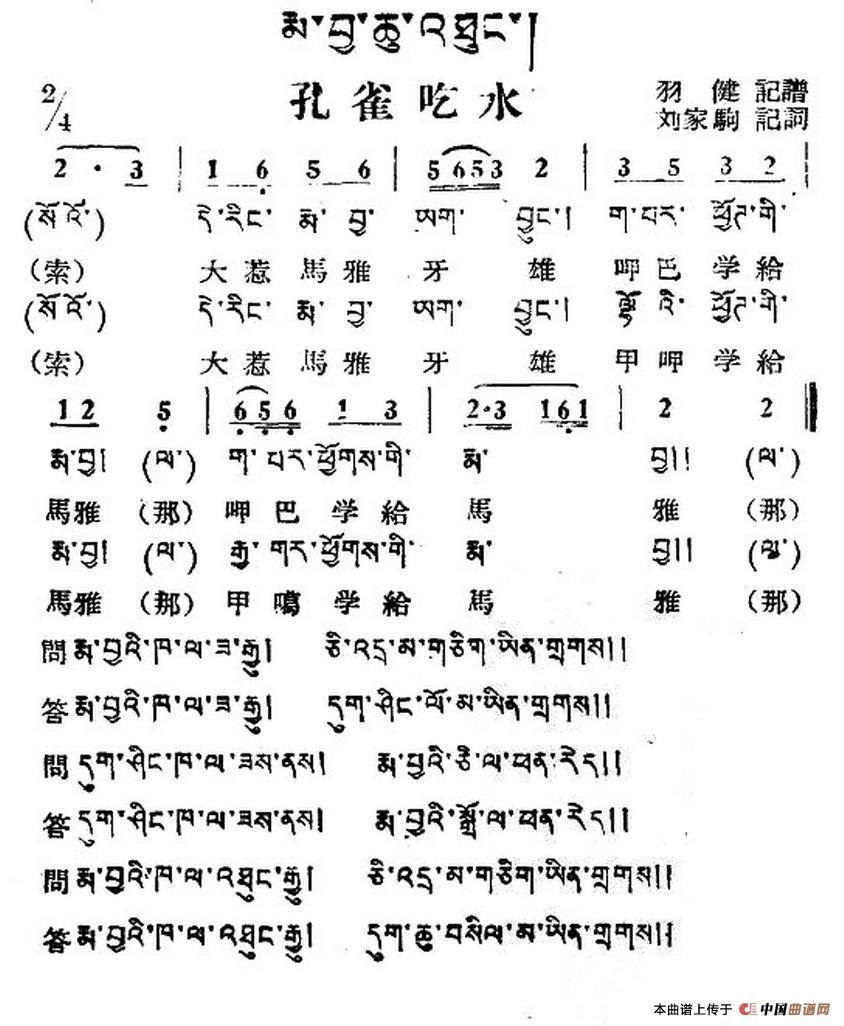 རྨ་བྱ་ཆུ་འཐུང་།
2/4 孔雀吃水 羽健記譜
刘家駒記詞
2 · 3 | 1 6 5 6 | 5653 2 | 3 5 3 2 |
(སོ་འོ་) དེ་རིང་ རྨ་ བྱ་ ཡག་ བྱུང་། ག་པར་ ཕྱོཊ་གི་
(索) 大惹馬雅牙雄呷巴学給
(སོ་འོ་) དེ་རིང་ རྨ་ བྱ་ ཡག་ བྱུང་། ལྷོ་འི་ ཕྱོཊ་གི་
(索) 大惹馬雅牙雄甲呷学給
12 5 | 656 1 3 | 2·3 161 | 2 2
རྨ་བྱ། (ལ་) ག་ པར་ཕྱོགས་གི་ རྨ་ བྱ།། (ལ་)
馬雅(那)呷巴学給馬雅(那)
རྨ་བྱ། (ལ་) རྒྱ་ གར་ཕྱོགས་གི་ རྨ་ བྱ།། (ལ་)
馬雅(那)甲噶学給馬雅(那)
問 རྨ་བྱའི་ཁ་ལ་ཟ་རྒྱུ། ཅི་འདྲ་མ་གཅིག་ཡིན་གྲགས།།
答 རྨ་བྱའི་ཁ་ལ་ཟ་རྒྱུ། དུག་ཤིང་ལོ་མ་ཡིན་གྲགས།།
問 དུག་ཤིང་ཁ་ལ་ཟས་ནས། རྨ་བྱའི་ཅི་ལ་ཕན་རེད།།
答 དུག་ཤིང་ཁ་ལ་ཟས་ནས། རྨ་བྱའི་སྒྲོ་ལ་ཕན་རེད།།
問 རྨ་བྱའི་ཁ་ལ་འཐུང་རྒྱུ། ཅི་འདྲ་མ་གཅིག་ཡིན་གྲགས།།
答 རྨ་བྱའི་ཁ་ལ་འཐུང་རྒྱུ། དུག་ཆུ་བསིལ་མ་ཡིན་གྲགས།།
本曲谱上传于 中国曲谱网